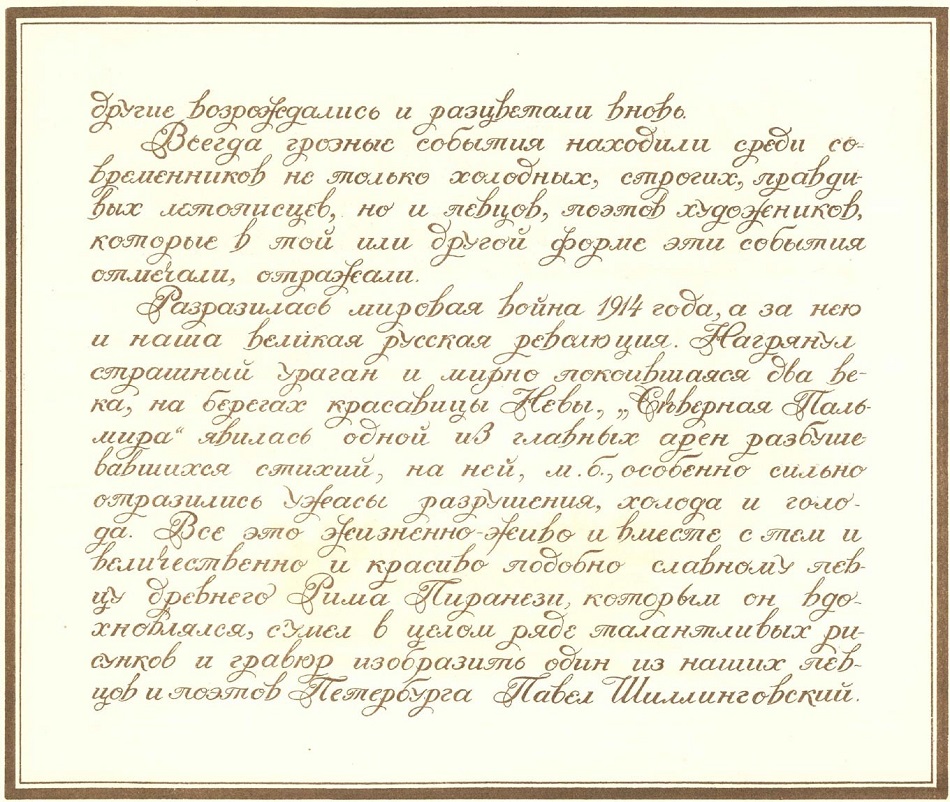 другие возрождались и разцветали вновь.
Всегда грозные события находили среди со-
временников не только холодных, строгих, правди-
вых летописцев, но и певцов, поэтов художников,
которые в той или другой форме эти события
отмечали, отражали.
Разразилась мировая война 1914 года, а за нею
и наша великая русская революция. Нагрянул
страшный ураган и мирно покоившаяся два ве-
ка, на берегах красавицы Невы, „Северная Паль-
мира“ явилась одной из главных арен разбуше-
вавшихся стихий, на ней, м.б., особенно сильно
отразились ужасы разрушения, холода и голо-
да. Все это жизненно-живо и вместе с тем и
величественно и красиво подобно славному пев-
цу древнего Рима Пиранези, которым он вдо-
хновлялся, сумел в целом ряде талантливых ри-
сунков и гравюр изобразить один из наших пев-
цов и поэтов Петербурга Павел Шиллинговский.